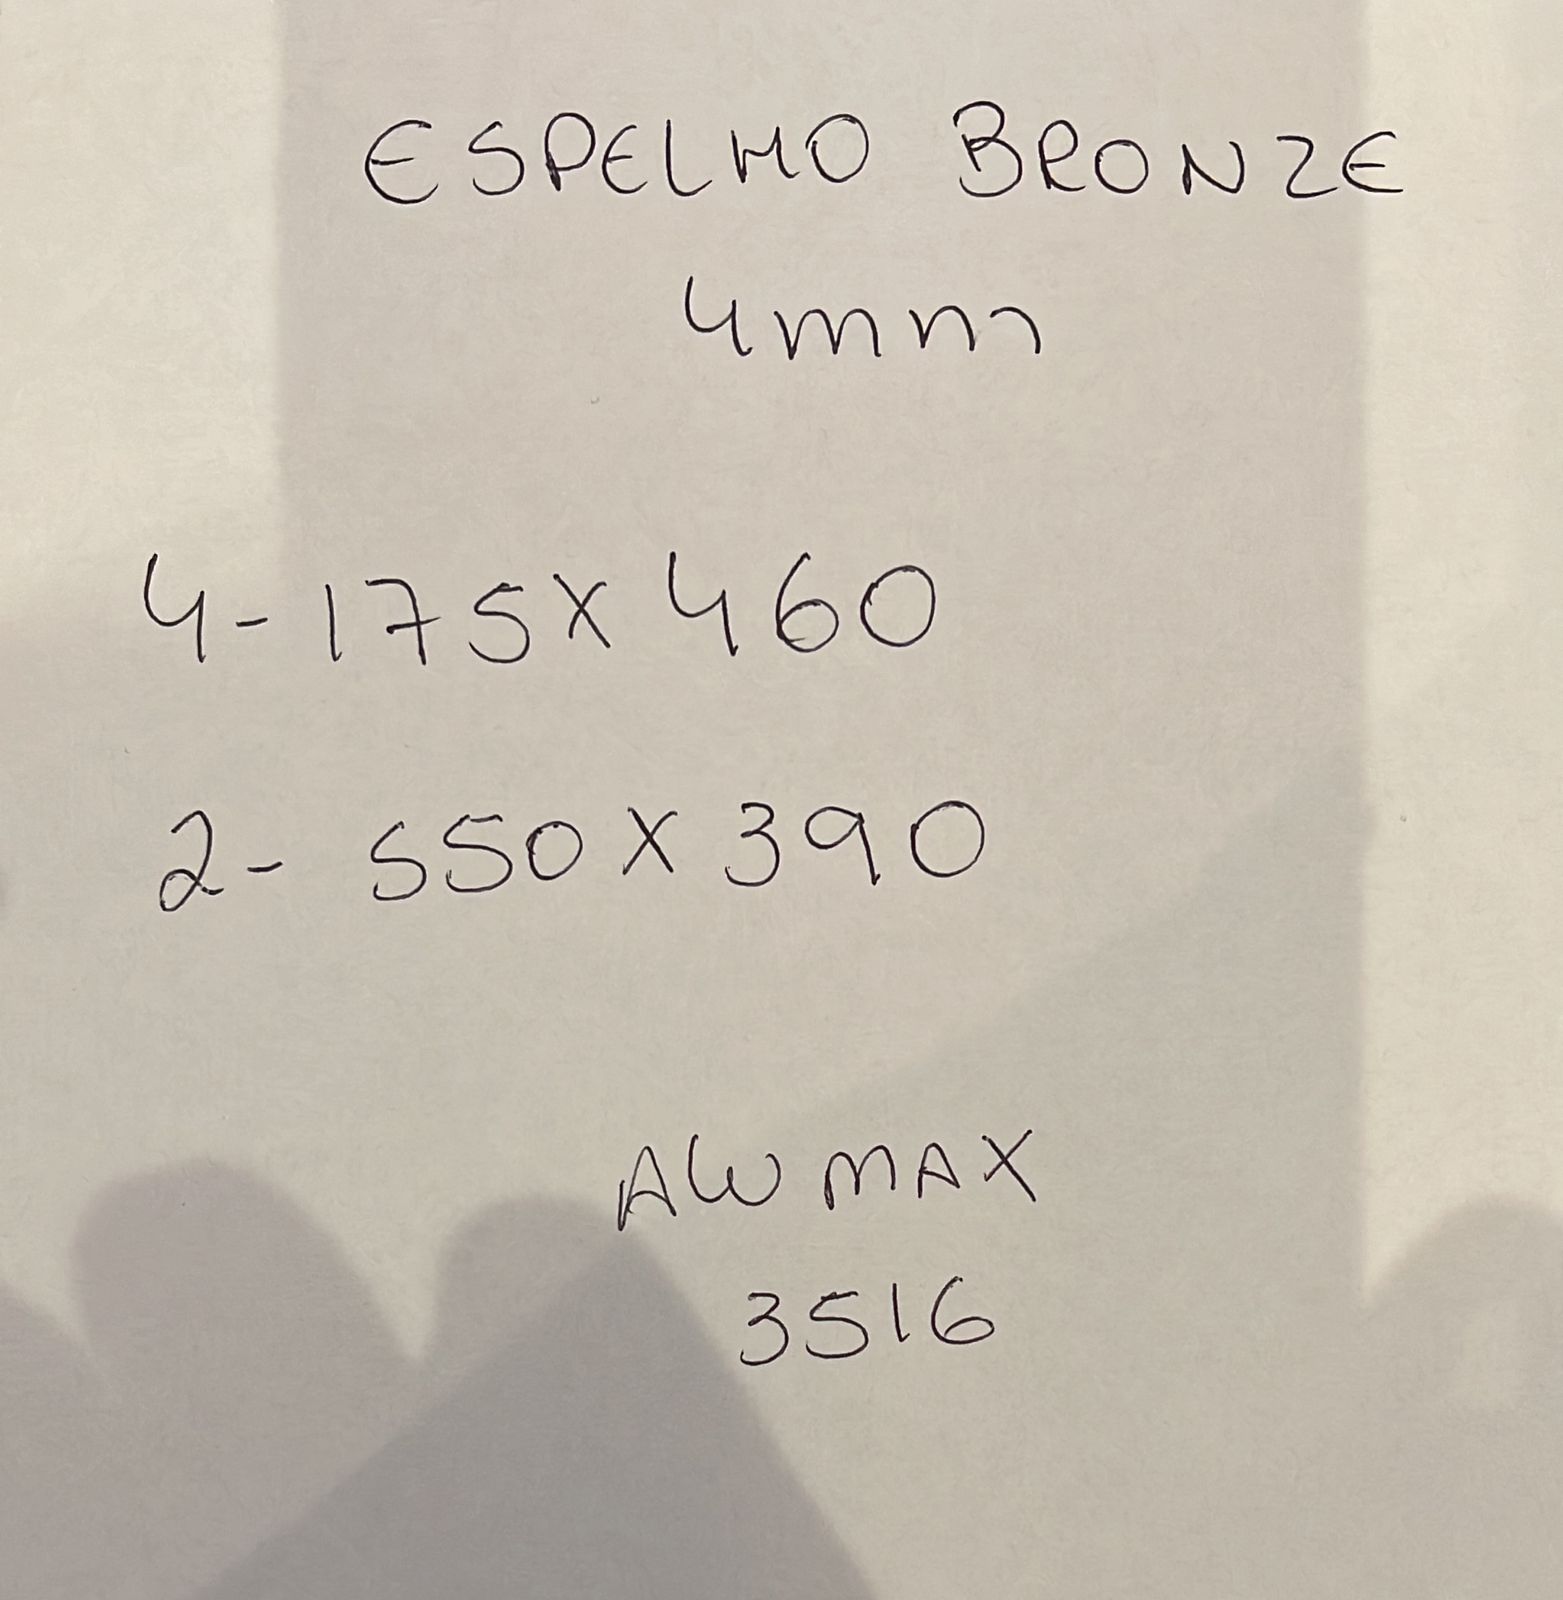 ESPELHO BRONZE
4mm
4- 175X460
2- 550X390
ALUMAX
3516